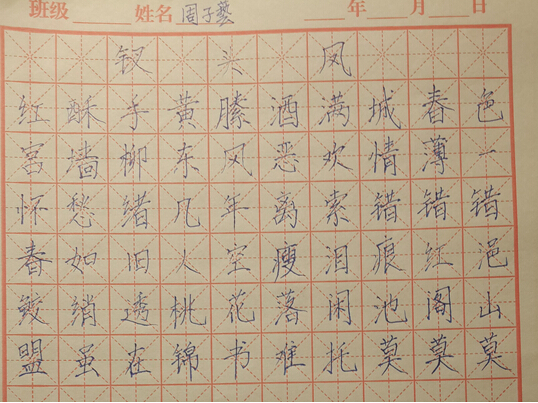 班级 姓名 周子藝 年 月 日
钗头凤
红酥手黄縢酒满城春色
宫墙柳东风恶欢情薄一
怀愁绪几年离索错错错
春如旧人空瘦泪痕红浥
鲛绡透桃花落闲池阁山
盟虽在锦书难托莫莫莫